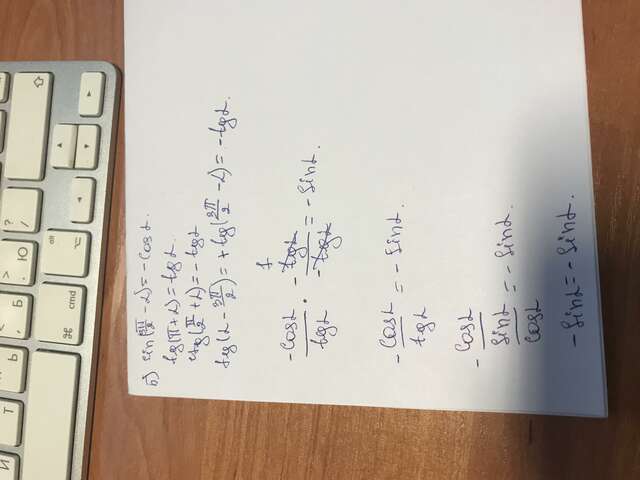 б) sin(3π/2 - α) = -cosα.
tg(π + α) = tgα.
ctg(π/2 + α) = -tgα
tg(α - 3π/2) = + tg(3π/2 - α) = -tgα.
-cosα/tgα · -tgα/-tgα = -sinα. 1
-cosα/tgα = -sinα
-cosα/(sinα/cosα) = -sinα.
-sinα = -sinα.
cmd
alt
⌘
⌥
?
/
Ю
Б
Ь
Т
И
>
<